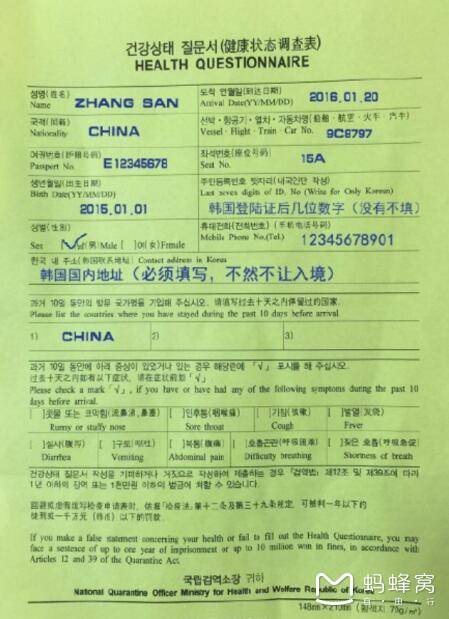 건강상태 질문서(健康状态调查表)
HEALTH QUESTIONNAIRE
성명(姓名)
Name ZHANG SAN
도착 연월일(到达日期)
Arrival Date(YY/MM/DD) 2016.01.20
국적(国籍)
Nationality CHINA
선박·항공기·열차·자동차명(船舶·航空·火车·汽车)
Vessel·Flight·Train·Car No. 9C8797
여권번호(护照号码)
Passport No. E12345678
좌석번호(座位号码)
Seat No. 15A
생년월일(出生日期)
Birth Date(YY/MM/DD)
2015.01.01
주민등록번호 뒷자리(내국인만 작성)
Last seven digits of ID. No (Write for Only Korean)
韩国登陆证后几位数字（没有不填）
성별(性别)
Sex [√]남(男)Male [ ]여(女)Female
휴대전화(전화번호) (手机电话号码)
Mobile Phone No.(Tel.) 12345678901
한국 내 주소(韩国联系地址) Contact address in Korea
韩国国内地址（必须填写，不然不让入境）
과거 10일 동안의 방문 국가명을 기입해 주십시오. 请填写过去十天之内停留过的国家.
Please list the countries where you have stayed during the past 10 days before arrival.
1) CHINA 2) 3)
과거 10일 동안에 아래 증상이 있었거나 있는 경우 해당란에 「√」 표시를 해 주십시오.
过去十天之内如有以下症状, 请在症状前划「√」
Please check a mark「√」, if you have or have had any of the following symptoms during the past 10
days before arrival.
[ ]콧물 또는 코막힘(流鼻涕,鼻塞) [ ]인후통(咽喉痛) [ ]기침(咳嗽) [ ]발열(发烧)
Runny or stuffy nose Sore throat Cough Fever
[ ]설사(腹泻) [ ]구토(呕吐) [ ]복통(腹痛) [ ]호흡곤란(呼吸困难) [ ]잦은 호흡(呼吸急促)
Diarrhea Vomiting Abdominal pain Difficulty breathing Shortness of breath
건강상태 질문서 작성을 기피하거나 거짓으로 작성하여 제출하는 경우 「검역법」 제12조 및 제39조에 따라
1년 이하의 징역 또는 1천만원 이하의 벌금에 처할 수 있습니다.
回避或虚假填写检查申请表时, 依据「检疫法」第十二条及第三十九条规定, 可被判一年以下的
徒刑或一千万元 (韩币) 以下的罚款.
If you make a false statement concerning your health or fail to fill out the Health Questionnaire, you may
face a sentence of up to one year of imprisonment or up to 10 million won in fines, in accordance with
Articles 12 and 39 of the Quarantine Act.
국립검역소장 귀하
National Quarantine Officer Ministry for Health and Welfare Republic of Korea
148㎜×210㎜ (황색지 70g/㎡)
蚂蜂窝
自·由·行